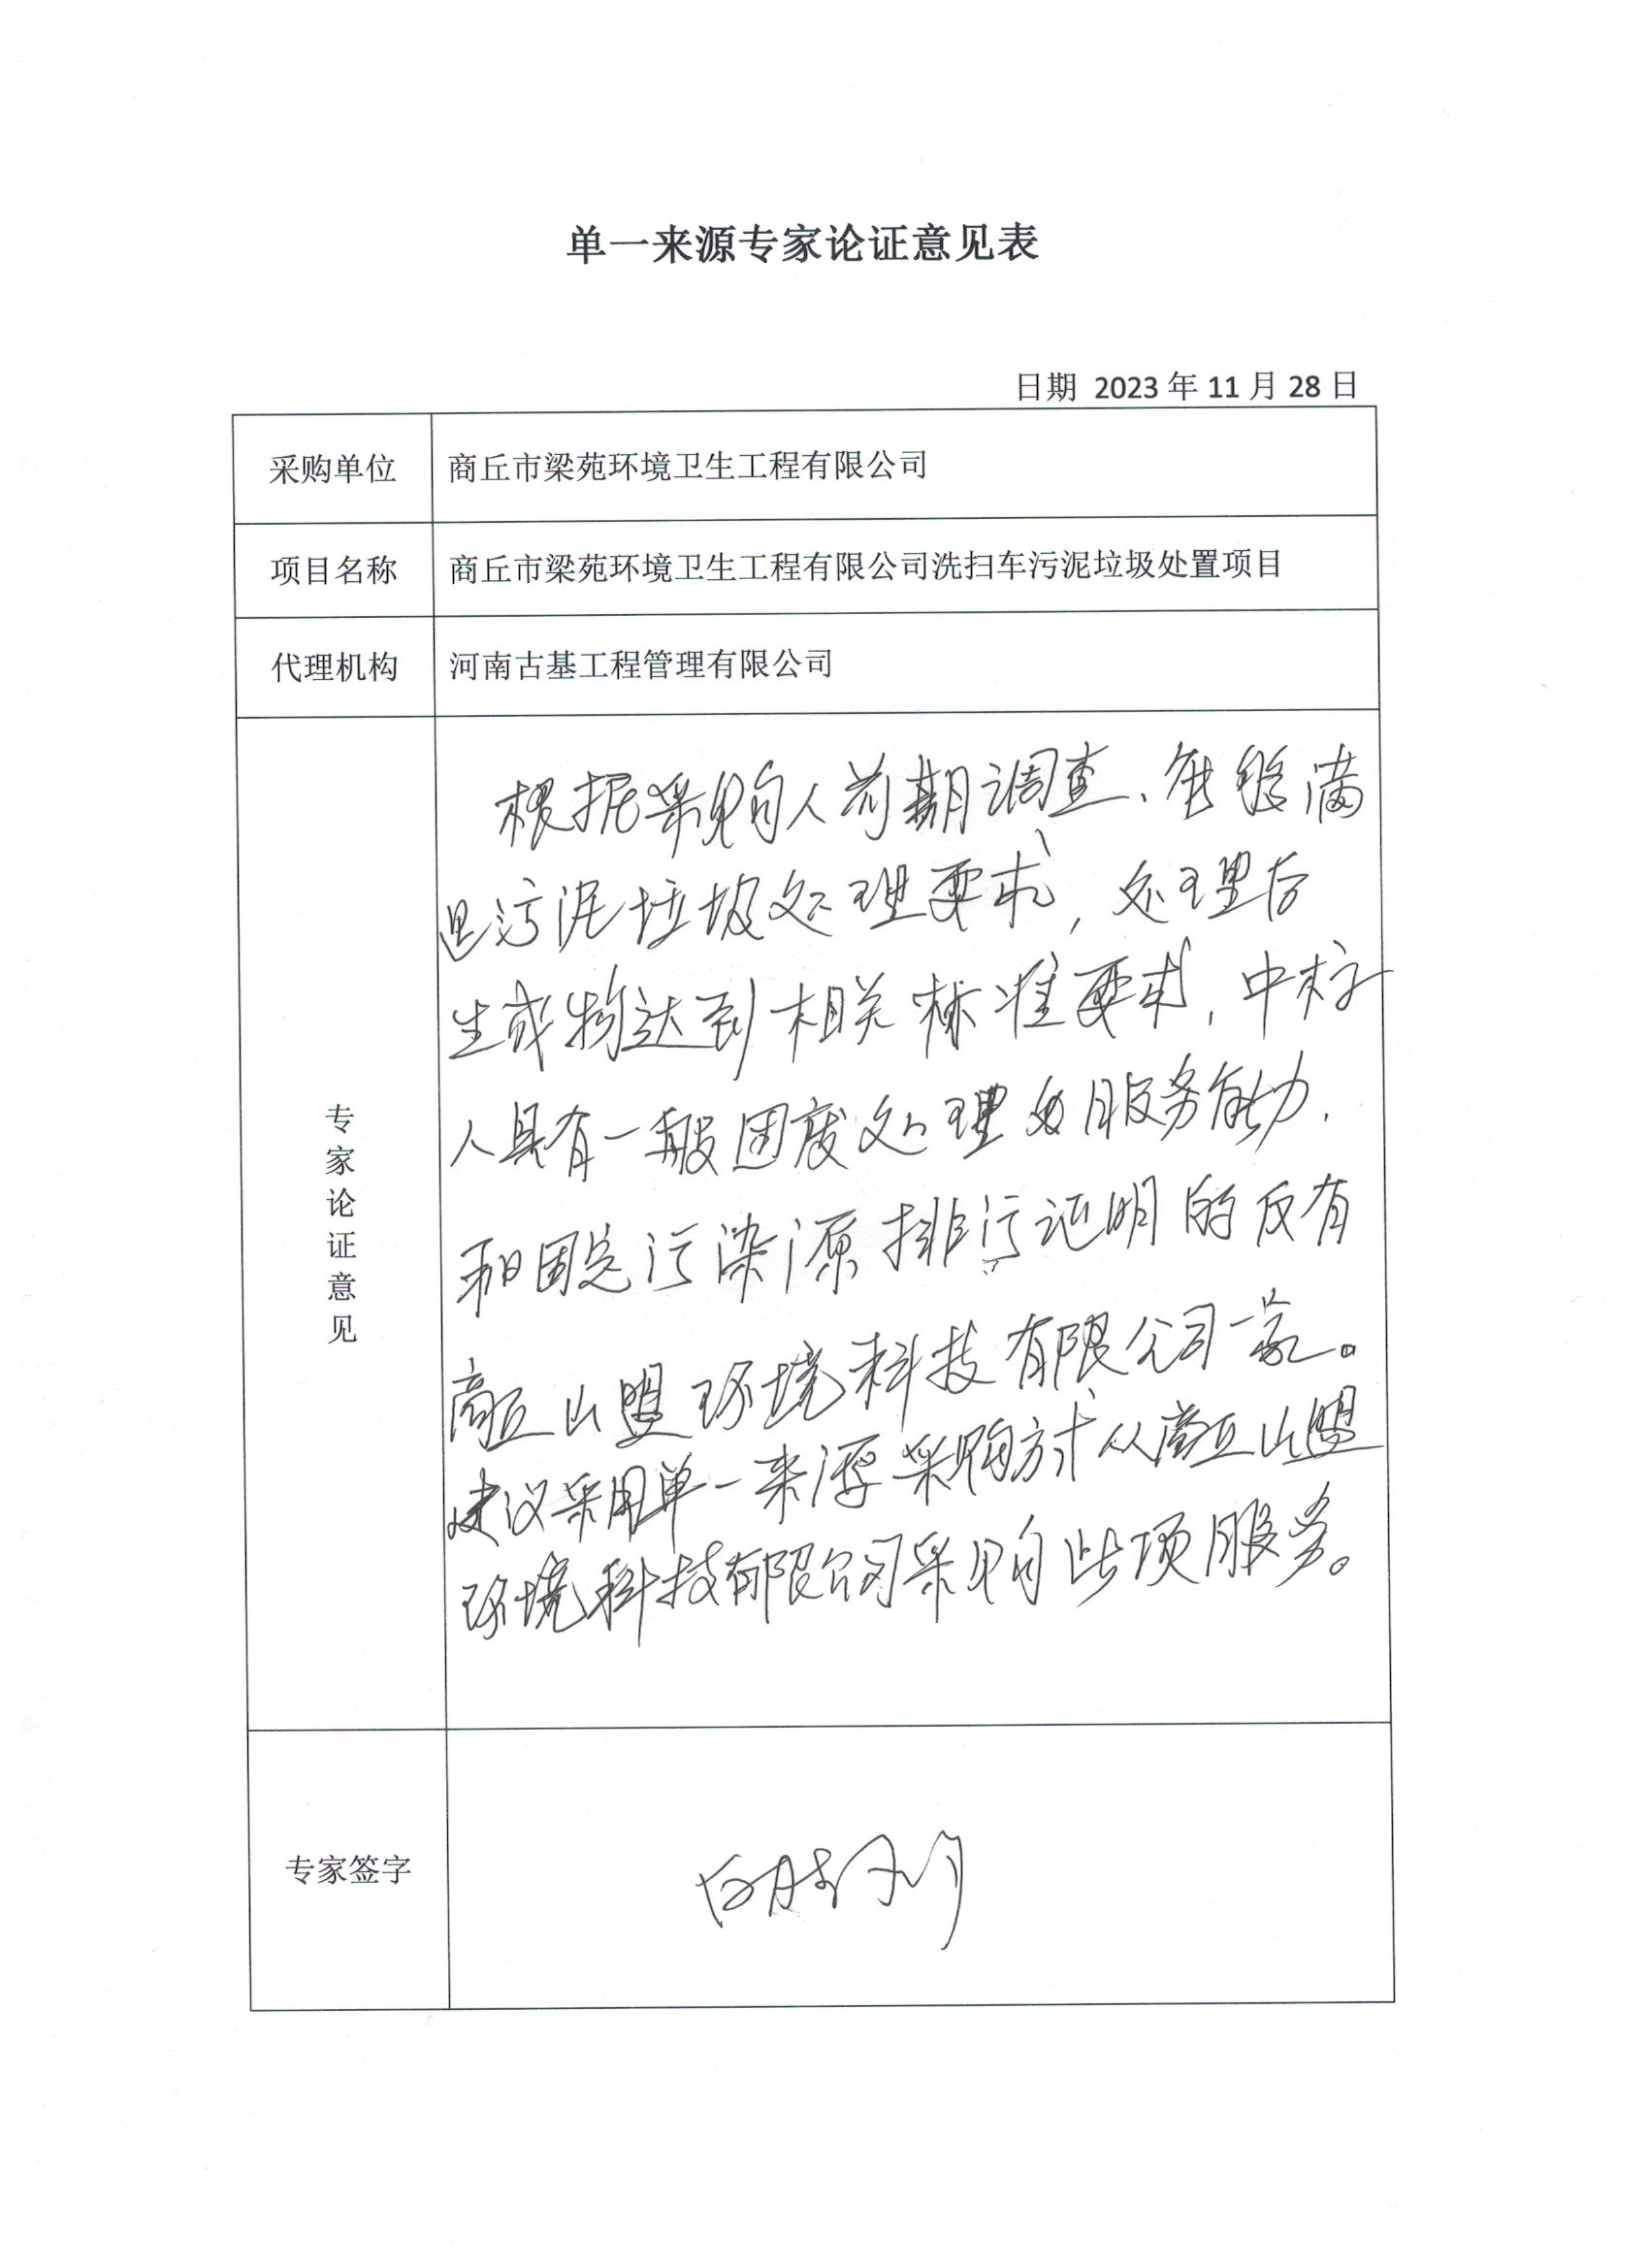 单一来源专家论证意见表
日期 2023 年 11 月 28 日
采购单位
商丘市梁苑环境卫生工程有限公司
项目名称
商丘市梁苑环境卫生工程有限公司洗扫车污泥垃圾处置项目
代理机构
河南古基工程管理有限公司
专家论证意见
根据采购人前期调查、能够满
足污泥垃圾处理要求，处理后
生成物达到相关标准要求，中标
人具有一般固废处理的服务能力，
和固定污染源排污证明的仅有
商丘山盟环境科技有限公司一家。
建议采用单一来源采购方式从商丘山盟
环境科技有限公司采购此项服务。
专家签字